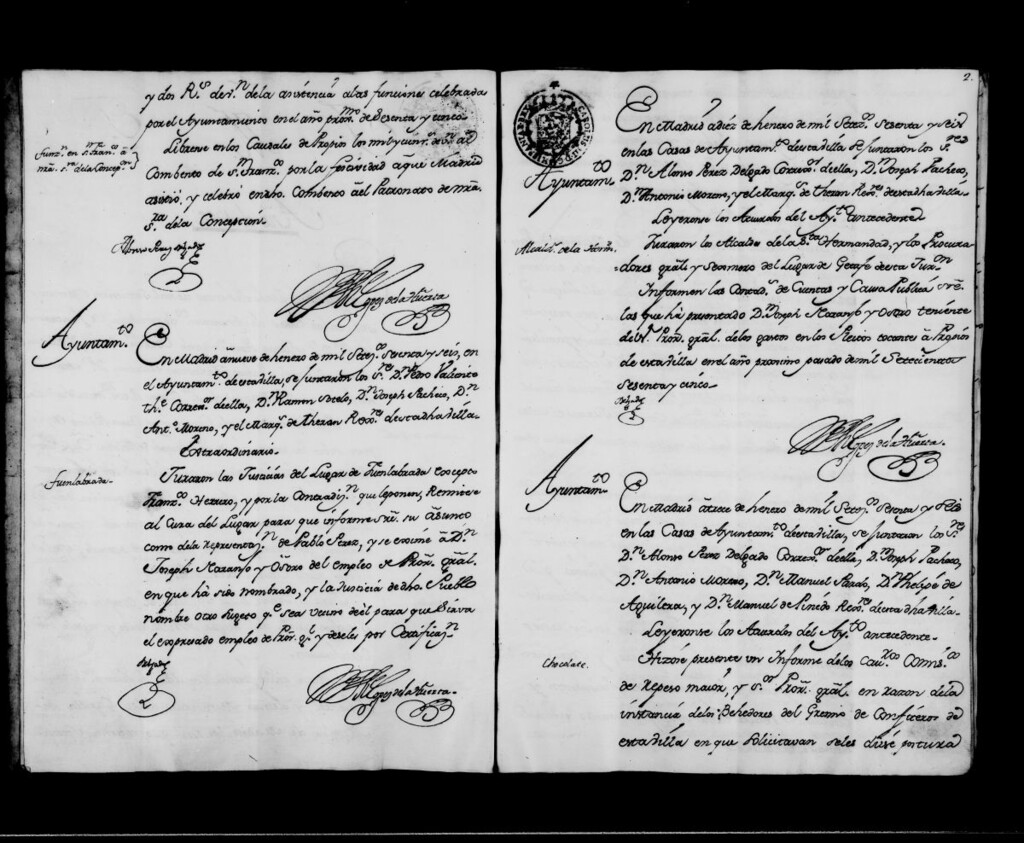 y dos R.^s de v.^n de la asistencia a las funciones celebradas
por el Ayuntamiento en el año prox.^mo de sesenta y cinco
Librense en los Caudales de Propios los mil y cien r.^s de v.^n al
Combento de s.^n Fran.^co por la festividad a que Madrid
asistió, y celebró en dho. Combento al Patronato de nra.
S.^ra de la Concepción
Funz.^n en s.^n Fran.^co a
nra. s.^ra de la Concep.^on
Alonso Perez Delgado
Lopez de la Huerta
Ayuntam.^to
En Madrid a nueve de henero de mil Setez.^s Sesenta y Seis, en
el Ayuntam.^to de esta villa, se juntaron los S.^res D.^n Pedro Valiente
th.^e Correx.^or de ella, D.^n Ramon Sotelo, D.^n Joseph Pacheco, D.^n
Ant.^o Moreno, y el Marq.^s de theran Rex.^res de esta dha villa.
Extraordinario.
Fuenlabrada.
Juraron las Justicias del Lugar de Fuenlabrada excepto
Fran.^co Herrero, y por la Contradiz.^n que le ponen, Remitese
al Cura del Lugar para que informe sre. su asunto
como de la representaz.^n de Pablo Perez, y se exsime a D.^n
Joseph Naranjo y Osorio del empleo de Pror. gral.
en que há sido nombrado, y la Justicia de dho. Pueblo
nombre otro sugeto q.^e sea vecino de él para que sirva
el expresado empleo de Pror. g.^l y deseles por Certificaz.^n
Delgado
Lopez de la Huerta.
2.
En Madrid a diez de henero de mil Setez.^s Sesenta y Seis
en las Casas de Ayuntam.^to de esta villa se juntaron los S.^res
Ayuntam.^to
D.^n Alonso Perez Delgado Correx.^or de ella, D.^n Joseph Pacheco,
D.^n Antonio Moreno, y el Marq.^s de theran Rex.^res de esta dha villa.
Leyeronse los Acuerdos del Ay.^to antecedente
Alcaldes de la Herm.^d
Juraron los Alcaldes de la S.^ta Hermandad, y los Procura
dores grāls y Sexmero del Lugar de Getafe de esta Jur.^on
Informen las Contad.^s de Cuentas y Causa Publica sre.
las que há presentado D.^n Joseph Naranjo y Osorio teniente
del s.^r Pror. gral. de los gastos en los Pleitos tocantes a Propios
de esta villa en el año proximo pasado de mil Setecientos
Sesenta y cinco.
Delgado
Lopez de la Huerta.
Ayuntam.^to
En Madrid a trece de henero de mil Setez.^s Sesenta y Seis
en las Casas de Ayuntam.^to de esta villa, se juntaron los S.^res
D.^n Alonso Perez Delgado Correx.^or de ella, D.^n Joseph Pacheco,
D.^n Antonio Moreno, D.^n Manuel D.^n Phelipe de
Aguilera, y D.^n Manuel de Pinedo Rex.^res de esta dha villa.
Leyeronse los Acuerdos del Ay.^to antecedente.
Chocolate.
Hizose presente un Informe de los Cav.^ros Comis.^s
de repeso maior, y s.^or Pror. gral. en razon de la
instancia de los Vehedores del Gremio de Confiteros de
esta villa en que solicitavan se les diese postura